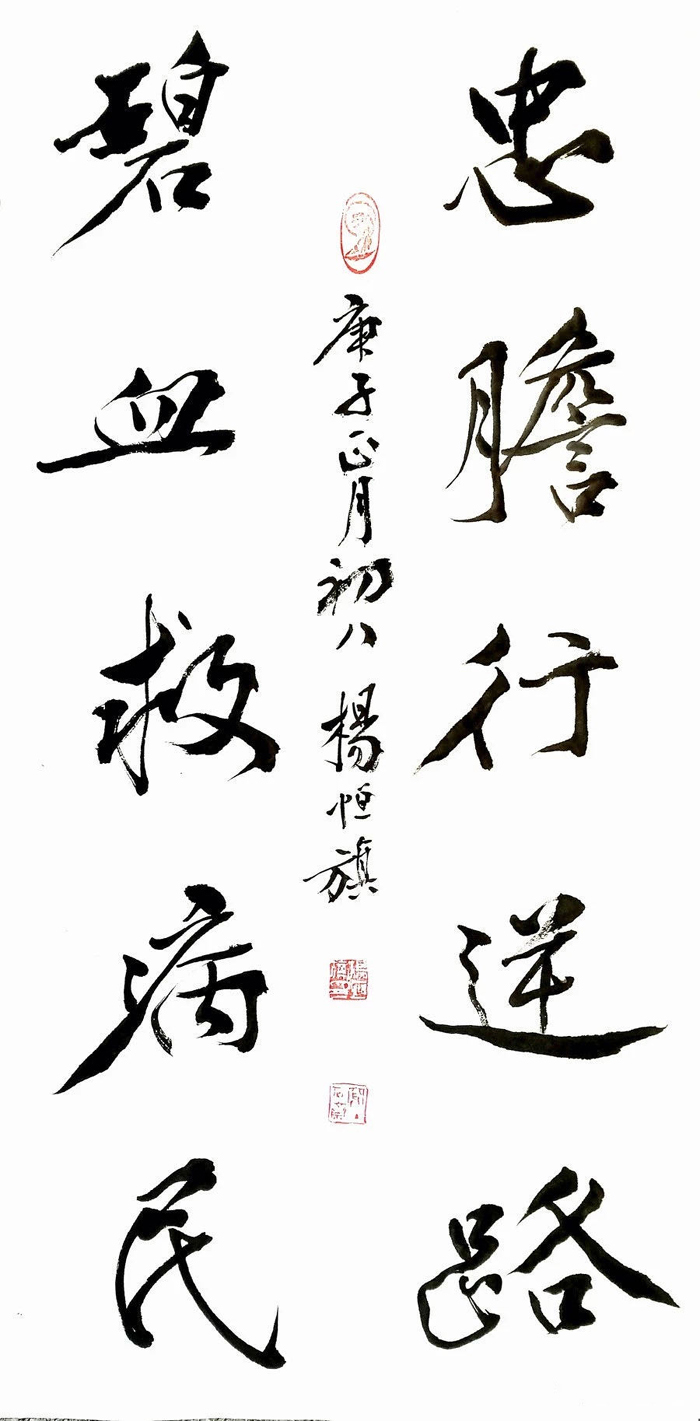 忠膽行逆路
碧血救病民
庚子正月初八 楊恒旗